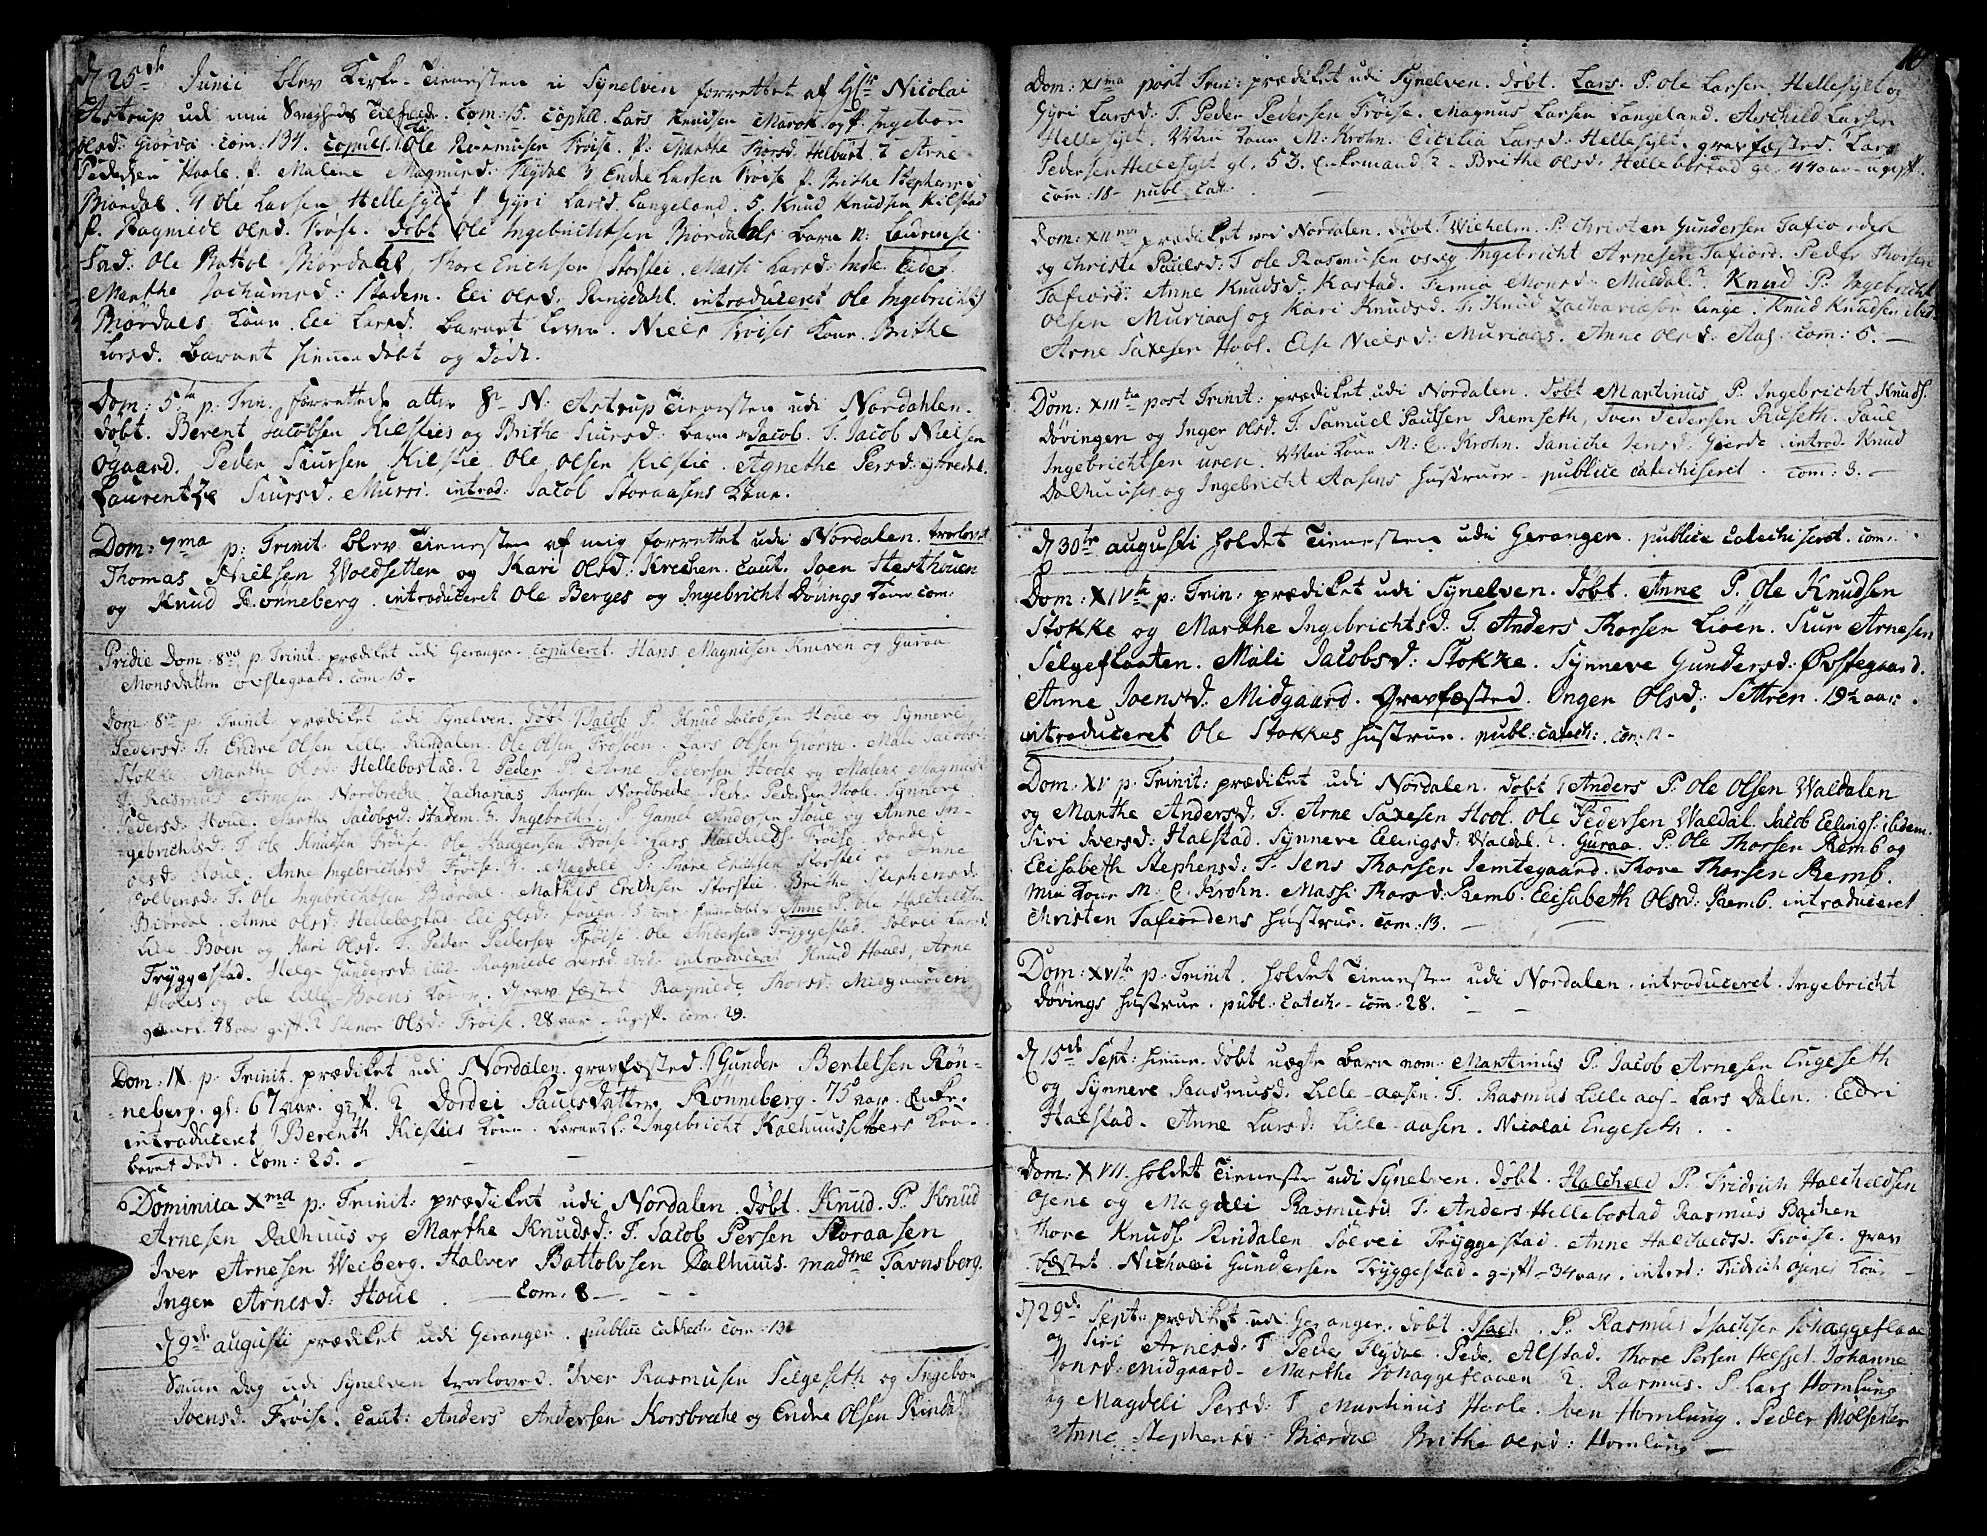 d 25de Junii blev Kirke-Tienesten i Synelven forrettet af Hr Nicolai
Astrup udi min Svagheds Tilfelde. Com: 15. Lars Knudsen Marok og P. Ingebor
Olsd: Giørva. Com: 134. copul. 1 Ole Rasmusen Frøise. P: Marthe Thorsd. 2 Arne
Pedersen Hoole. P. Malene Magnusd: Flÿdal 3 Endre Larsen Frøise P. Brithe Stephensd
Biørdal. 4 Ole Larsen Hellesÿlt P Gyri Larsd: Langeland. 5. Knud Knudsen Kilstad
P. Ragnilde Olsd: Frøise. døbt Ole Ingebrichtsen Biørdals barn n: Laurense
Fad: Ole Bottol Biørdahl, Thore Erichsen Storstei. Marti Larsd: Indr. Eidet.
Marthe Jochumsd: Stadem. Eli Olsd: Ringdahl. introduceret Ole Ingebrichts
Biørdals Kone. Eli Larsd. barnet lever. Niels Frøises Kone. Brithe
Larsd. barnet hiemme døbt og dødt.
Dom: 5ta p. Trin. forrettede atter Hr N: Astrup Tienesten udi Nordahlen.
døbt. Berent Jacobsen Kilsties og Brithe Siursd: barn Jacob. F. Jacob Nielsen
Øgaard. Peder Siursen Kilstie. Ole Olsen Kilstie. Agnethe Persd: ÿtredal.
Laurentze Siursd: Murri. introd: Jacob Storaasens Kone.
Dom: 7ma p: Trinit. blev Tienesten af mig forrettet udi Nordalen. trolovet
Thomas Nielsen Woldsetter og Kari Olsd: Krechen. Caut. Joen Hesthouen
og Knud Rønneberg. introduceret Ole Berges og Ingebricht Døvings Koner. com:
Pridie Dom. 8va p. Trinit. prædiket udi Geranger. copuleret. Hans Magnusen Kniven og Guraa
Monsdatter Ovstegaard. com: 15.
Dom. 8va p Trinit prædiket udi Synelven. døbt 1 Jacob P. Knud Jacobsen Houe og Synneve
Pedersd: F. Endre Olsen Lille Rindalen. Ole Olsen Frøsøen. Lars Olsen Giørva. Mali Jacobsd:
Stokke. Marthe Olsd: Hellebostad. 2 Peder P. Arne Pedersen Hoole og Malene Magnusd:
F. Rasmus Arnesen Nordbreche. Zacharias Thorsen Nordbreche. Peder Pedersen Hoole. Synneve
Pedersd: Houe. Marthe Jacobsd: Stadem. 3. Ingebricht. P Gamel Andersen Houe og Anne In-
gebrichtsd. F Ole Knudsen Frøise. Ole Haagensen Frøise. Lars Halchelds. Frøise. Dordei
Olsd: Houe. Anne Ingebrichtsd Frøise. 4. Magdeli P. Thore Erichsen Storstei og Anne
Colbensd: F. Ole Ingebrichtsen Biørdal. Mathis Erichsen Storstei. Brithe Stephensd.
Biørdal. Anne Olsd: Hellebostad Eli Olsd: 5. Anne P. Ole Halcheldsen
Lille Boen og Kari Olsd: F. Peder Pedersen Frøise Ole Andersen Trÿggestad. Solvei Larsd.
Trÿggestad. Helge Gundersd: ibid. Ragnilde Iversd ibid. introduceret Knud Houes, Arne
Hooles og Ole Lille-Boens Koner. Gravfæstet Ragnilde Thorsd: Midgaarden i
48 aar gift. 2 Olsd: Frøise. 28 aar ugift. com: 29.
Dom: IX p: Trinit. prædiket udi Nordalen. gravfæsted 1 Gunder Bertelsen Røn-
neberg. gl: 67 aar. gift. 2 Dordei Paulsdatter Rønneberg. 75 aar. Enke.
introduceret 1 Berenth Kilsties Kone. barnet l: 2 Ingebricht Kalhuussetters Kone
barnet dødt. Com: 25.
Dominica Xma p: Trinit: prædiket udi Nordalen. døbt. Knud. P. Knud
Arnesen Dalhuus og Marthe Knudsd: F. Jacob Persen Storaasen
Iver Arnesen Weiberg. Halver Bottolvsen Dalhuus. madme Favnsberg.
Inger Arnesd: Houe. Com: 8
d 9de augusti prædiket udi Geranger. publice cathed: com: 13
Samme Dag udi Synelven troloved. Iver Rasmusen Selgeseth og Ingebor
Joensd. Frøise. Caut: Anders Andersen Korsbreche og Endre Olsen Rindal
Dom: XIma post Trin: prædiket udi Synelven. døbt. Lars. P. Ole Larsen Hellesÿlt og
Gÿri Larsd: F. Peder Pedersen Frøise. Magnus Larsen Langeland. Ascheld Larsen
Hellesÿlt. Min Kone M: Krohn. Cicilia Larsd: Hellesÿlt. gravfæsted. Lars
Pedersen Hellesÿlt gl. 53. 2. Brithe Olsd: Hellebostad gl. 44 aar ugift.
com: 18. publ. Cat.
Dom: XIIma prædiket ved Nordalen. døbt. 1 Wilhelm. P. Christen Gundersen Tafiorden
og Christi Paulsd: F Ole Rasmusen Ingebricht Arnesen Tafiord. Peder Thorsen
Tafiord. Anne Knudsd: Kastad. Monsd: Muldal 2 Knud P. Ingebricht
Olsen Muriaas og Kari Knudsd. F. Knud Zachariæsøn Linge. Knud Knudsen ibid.
Arne Saxesen Hool. Else Nielsd: Muriaas. Anne Olsd: Aas. com: 5.
Dom: XIIItia post Trinit: prædiket udi Nordalen. døbt Martinus P. Ingebricht Knuds.
Døvingen og Inger Olsd. F. Samuel Paulsen Remseth, Iven Pedersen Ruseth. Paul
Ingebrichtsen Uren. Min Kone M: C. Krohn. Janiche Jensd: Gierde. introd. Knud
Dalhuuses og Ingebricht Aasens Hustruer. publice catechiseret. com: 3.
d 30te augusti holdet Tienesten udi Geranger. publice catechiseret. com:
Dom: XIVta p: Trin: prædiket udi Synelven. døbt. Anne P. Ole Knudsen
Stokke og Marthe Ingebrichtsd: F. Anders Thorsen Lien. Siur Arnesen
Selgeflaaten. Mali Jacobsd: Stokke. Synneve Gundersd: Øvstegaard.
Anne Joensd. Midgaard. Gravfæsted. Inger Olsd: Settren. 19½ aar.
introduceret Ole Stokkes Hustrue. publ: catech: com: 12
Dom: XV p: Trinit: prædiket udi Nordalen. døbt 1 Anders P. Ole Olsen Waldalen
og Marthe Andersd. F. Arne Saxesen Hool. Ole Pedersen Waldal. Jacob Ellings: ibidem.
Siri Iversd: Halstad. Synneve Ellingsd: Waldal. 2. Guraa. P. Ole Thorsen Remb og
Elisabeth Stephensd: F. Jens Thorsen Jemtegaard. Thore Thorsen Remb.
Min Kone M. C. Krohn. Massi Thorsd: Remb. Elisabeth Olsd: Remb. introduceret
Christen Tafiordens Hustrue. com: 13.
Dom: XVIta p: Trinit. holdet Tienesten udi Nordalen. introduceret. Ingebricht
Døvings Hustrue. publ: catech. com: 28.
d 15de Sept: hiemme døbt uægte barn nom: Martinus P. Jacob Arnesen Engeseth
og Synneve Rasmusd: Lille-aasen. F. Rasmus Lille aas. Lars Dalen. Eldri
Halstad. Anne Larsd: Lille-aasen. Nicolai Engeseth.
Dom: XVII. holdet Tieneste udi Synelven. døbt. Halcheld P. Fridrich Halcheldsen
Øjene og Magdeli Rasmusd F. Anders Hellebostad Rasmus Bachen
Thore Knuds. Rindalen Solvei Trÿggestad. Anne Halcheldsd. Frøise. grav
fæstet. Nicholai Gundersen Trÿggestad. gift 34 aar. introd: Fridrich Øjenes Kone
d 29de Sept: prædiket udi Geranger. døbt. Isach. P. Rasmus Isachsen Schaggeflaae
og Siri Arnesd: F Peder Flÿdal. Peder Alstad. Thore Persen Hesset. Johanne
Jonsd: Midgaard. Marthe Schaggeflaaen 2. Rasmus. P. Lars Homlung
og Magdeli Persd: F Martinus Hoole. Iven Homlung. Peder Mölseter
Anne Stephensd: Biørdal Brithe Olsd: Homlung